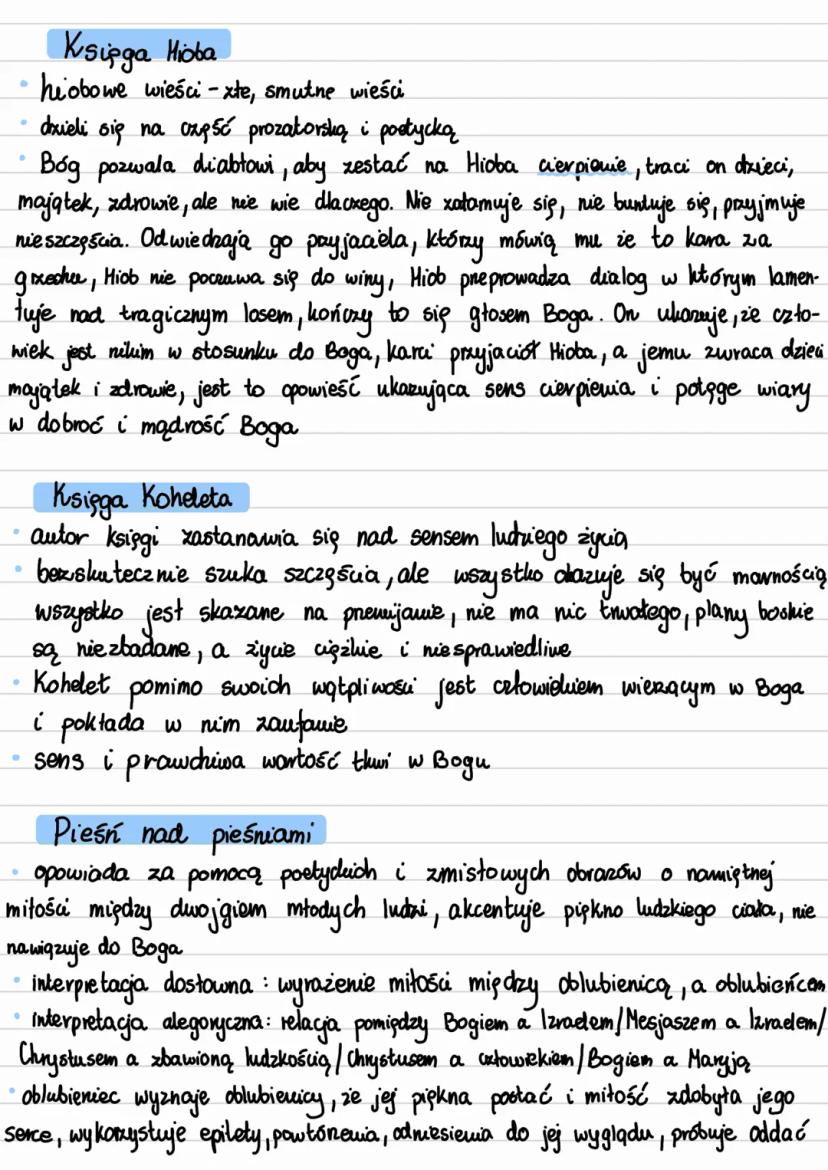 Księga Hioba
• hiobowe wieści - złe, smutne wieści
• dzieli się na część prozatorską i poetycką
• Bóg pozwala diabłowi, aby zesłać na Hioba cierpienie, traci on dzieci,
majątek, zdrowie, ale nie wie dlaczego. Nie załamuje się, nie buntuje się, przyjmuje
nieszczęścia. Odwiedzają go przyjaciela, którzy mówią mu że to kara za
grzechu, Hiob nie poczuwa się do winy, Hiob przeprowadza dialog w którym lamen-
tuje nad tragicznym losem, kończy to się głosem Boga. On ukazuje, że czło-
wiek jest nikim w stosunku do Boga, karci przyjaciół Hioba, a jemu zwraca dzieci
majątek i zdrowie, jest to opowieść ukazująca sens cierpienia i potęgę wiary
w dobroć i mądrość Boga
Księga Koheleta
• autor księgi zastanawia się nad sensem ludzkiego życia
• bezskutecznie szuka szczęścia, ale wszystko okazuje się być marnością
wszystko jest skazane na przemijanie, nie ma nic trwałego, plany boskie
są niezbadane, a życie ciężkie i niesprawiedliwe
• Kohelet pomimo swoich wątpliwości jest człowiekiem wierzącym w Boga
i pokłada w nim zaufanie
• sens i prawdziwa wartość tkwi w Bogu
Pieśń nad pieśniami
• opowiada za pomocą poetyckich i zmysłowych obrazów o namiętnej
miłości między dwojgiem młodych ludzi, akcentuje piękno ludzkiego ciała, nie
nawiązuje do Boga
• interpretacja dosłowna: wyrażenie miłości między oblubienicą, a oblubieńcem
• interpretacja alegoryczna: relacja pomiędzy Bogiem a Izraelem/Mesjaszem a Izraelem/
Chrystusem a zbawioną ludzkością/Chrystusem a człowiekiem/Bogiem a Maryją
• oblubieniec wyznaje oblubienicy, że jej piękna postać i miłość zdobyła jego
serce, wykorzystuje epitety, powtórzenia, odniesienia do jej wyglądu, próbuje oddać